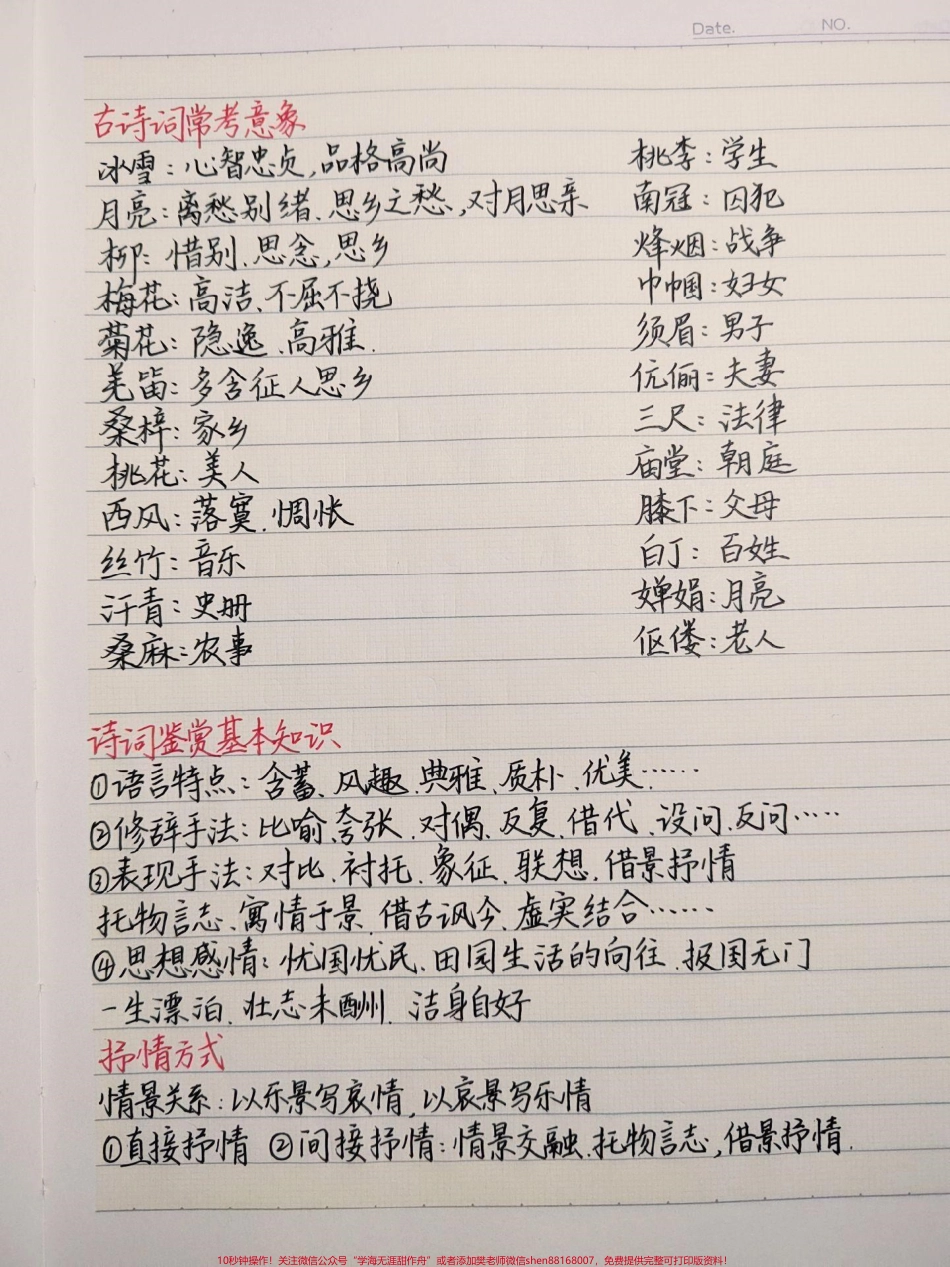 Date.
NO.
古诗词常考意象
冰雪：心智忠贞，品格高尚
桃李：学生
月亮：离愁别绪、思乡之愁，对月思亲
南冠：囚犯
柳：惜别、思念，思乡
烽烟：战争
梅花：高洁、不屈不挠
巾帼：妇女
菊花：隐逸、高雅.
须眉：男子
羌笛：多含征人思乡
伉俪：夫妻
桑梓：家乡
三尺：法律
桃花：美人
庙堂：朝庭
西风：落寞、惆怅
膝下：父母
丝竹：音乐
白丁：百姓
汗青：史册
婵娟：月亮
桑麻：农事
伛偻：老人
诗词鉴赏基本知识
①语言特点：含蓄、风趣、典雅、质朴、优美……
②修辞手法：比喻、夸张、对偶、反复、借代、设问、反问……
③表现手法：对比、衬托、象征、联想、借景抒情
托物言志、寓情于景、借古讽今、虚实结合……
④思想感情：忧国忧民、田园生活的向往、报国无门
一生漂泊、壮志未酬、洁身自好
抒情方式
情景关系：以乐景写哀情，以哀景写乐情
①直接抒情 ②间接抒情：情景交融、托物言志，借景抒情.
10秒钟操作！关注微信公众号“学海无涯甜作舟”或者添加樊老师微信shen88168007，免费提供完整可打印版资料！